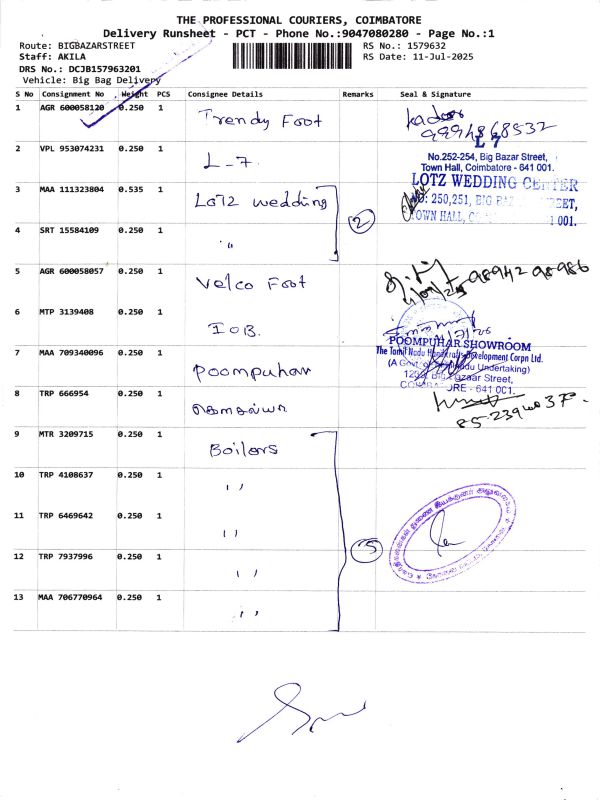 THE PROFESSIONAL COURIERS, COIMBATORE
Delivery Runsheet - PCT - Phone No.:9047080280 - Page No.:1
Route: BIGBAZARSTREET
RS No.: 1579632
Staff: AKILA
RS Date: 11-Jul-2025
DRS No.: DCJB157963201
Vehicle: Big Bag Delivery
S No Consignment No Weight PCS Consignee Details Remarks Seal & Signature
1 AGR 600058120 0.250 1 Trendy Foot
9994868532
2 VPL 953074231 0.250 1 L-7.
L 7
No.252-254, Big Bazar Street,
Town Hall, Coimbatore - 641 001.
3 MAA 111323804 0.535 1 LOTZ wedding
LOTZ WEDDING CENTER
NO: 250,251, BIG STREET,
TOWN HALL, 1 001.
2
4 SRT 15584109 0.250 1 "
5 AGR 600058057 0.250 1 Velco Foot
98942 98986
6 MTP 3139408 0.250 1 IOB.
7 MAA 709340096 0.250 1 Poompuhar
POOMPUHAR SHOWROOM
The Tamil Nadu Handicrafts Development Corpn Ltd.
(A Govt. of Tamil Nadu Undertaking)
Big Bazaar Street,
COIMBATORE - 641 001.
8 TRP 666954 0.250 1
9 MTR 3209715 0.250 1 Boilers
10 TRP 4108637 0.250 1 ''
11 TRP 6469642 0.250 1 ''
5
12 TRP 7937996 0.250 1 ''
13 MAA 706770964 0.250 1 ''